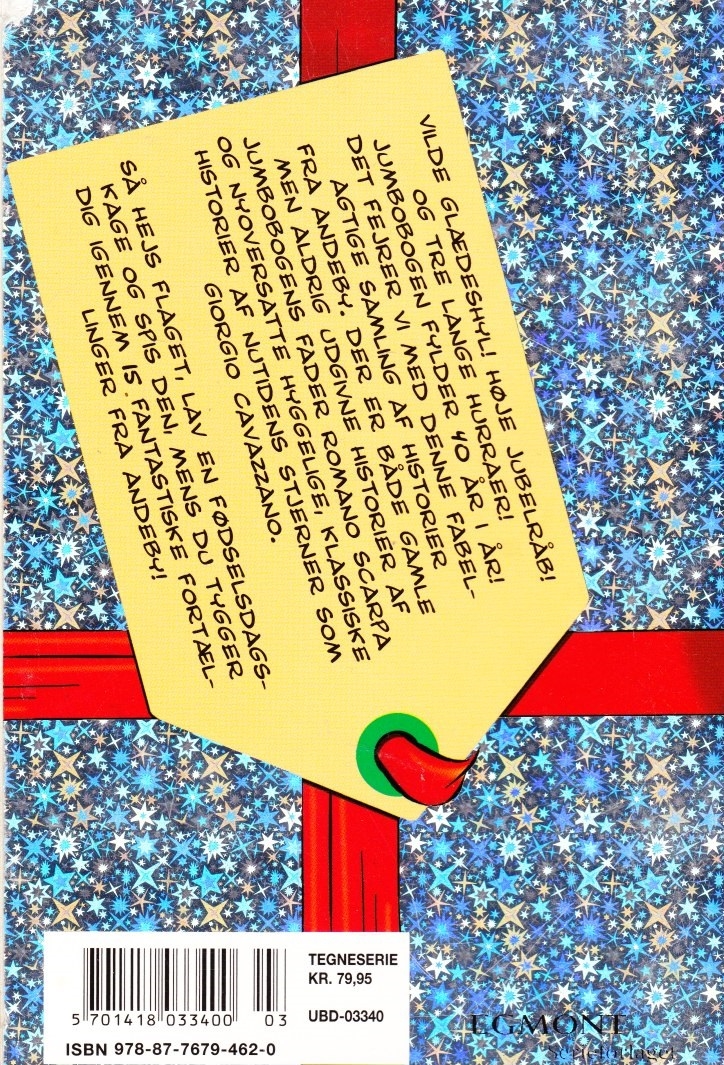 VILDE GLÆDESHYL! HØJE JUBELRÅB!
OG TRE LANGE HURRAER!
JUMBOBOGEN FYLDER 40 ÅR I ÅR!
DET FEJRER VI MED DENNE FABEL-
AGTIGE SAMLING AF HISTORIER
FRA ANDEBY. DER ER BÅDE GAMLE
MEN ALDRIG UDGIVNE HISTORIER AF
JUMBOBOGENS FADER ROMANO SCARPA
OG NYOVERSATTE HYGGELIGE, KLASSISKE
HISTORIER AF NUTIDENS STJERNER SOM
GIORGIO CAVAZZANO.
SÅ HEJS FLAGET, LAV EN FØDSELSDAGS-
KAGE OG SPIS DEN, MENS DU TYGGER
DIG IGENNEM IS FANTASTISKE FORTÆL-
LINGER FRA ANDEBY!
TEGNESERIE
KR. 79,95
UBD-03340
5 701418 033400 03
ISBN 978-87-7679-462-0
EGMONT
Serieforlaget